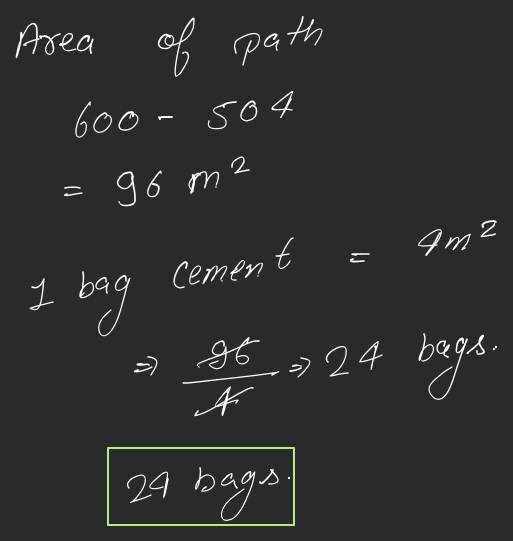 Area of path
600 - 504
= 96 m²
1 bag cement = 4m²
⇒ 96/4 ⇒ 24 bags.
24 bags.